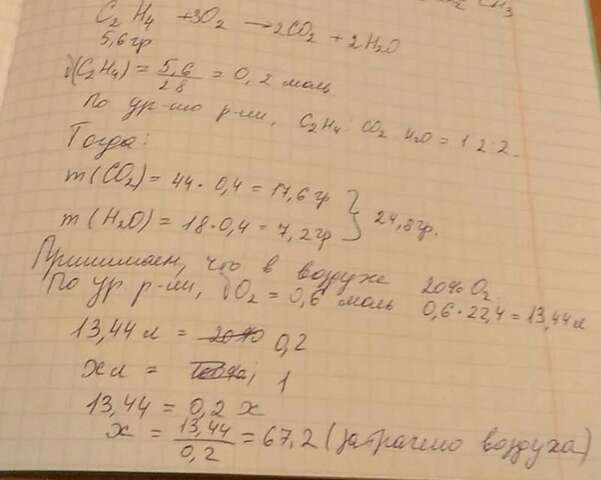 CH3
C2H4 + 3O2 → 2CO2 + 2H2O
5,6гр
ν(C2H4) = 5,6/28 = 0,2 моль
По ур-нию р-ии, C2H4 : CO2 H2O = 1 2 2.
Тогда:
m(CO2) = 44 · 0,4 = 17,6гр
m(H2O) = 18 · 0,4 = 7,2гр } 24,8гр.
Принимаем, что в воздухе 20% O2
По ур р-ии, νO2 = 0,6 моль 0,6 · 22,4 = 13,44л
13,44л = 0,2
xл = 1
13,44 = 0,2 x
x = 13,44/0,2 = 67,2 (затрачено воздуха)